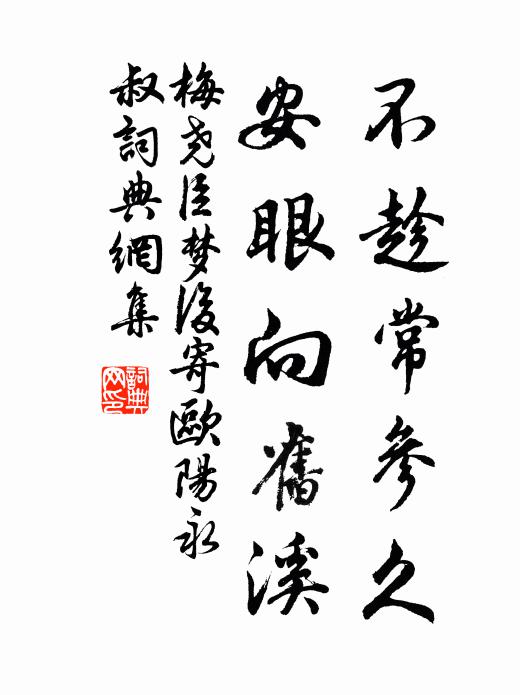 不趁常參久
安眼向舊溪
梅尧臣梦後寄歐陽永
叔詞典網集
詞典
网印